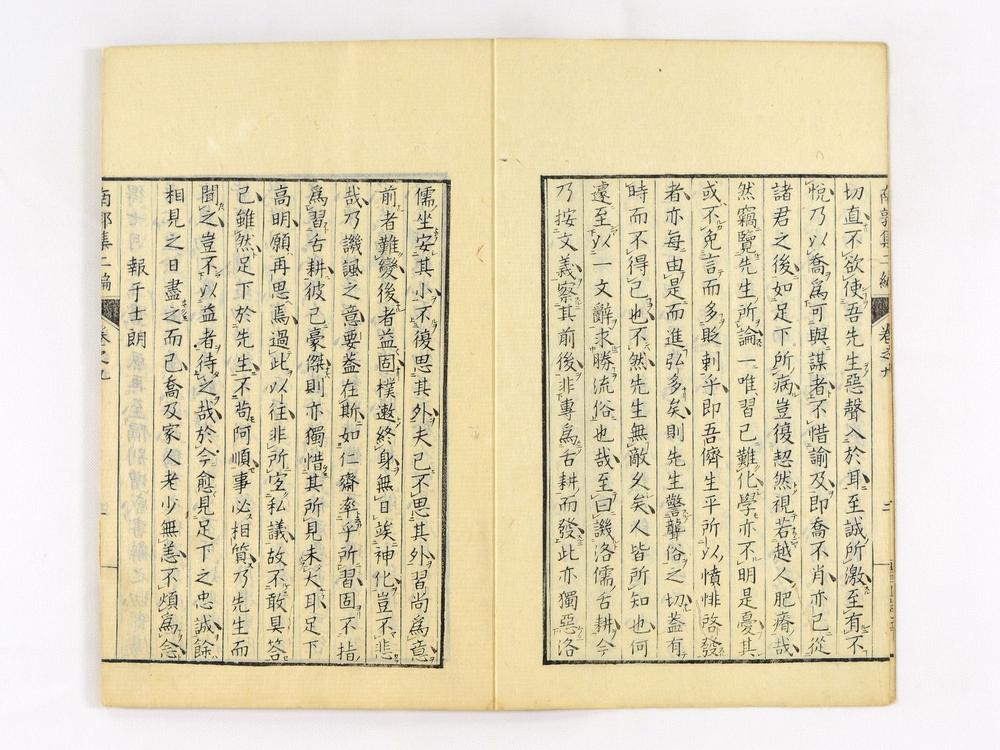 南郭集二編 卷之九 二
切直不欲使吾先生惡聲入於耳至誠所激至有不
悅乃以喬爲可與謀者不惜諭及即喬不肖亦已從
諸君之後如足下所病豈復恝然視若越人肥瘠哉
然竊覽先生所論一唯習已難化學亦不明是憂其
或不免言而多貶刺乎即吾儕生平所以憤悱啓發
者亦每由是而進弘多矣則先生警聾俗之切蓋有
時而不得已也不然先生無敵久矣人皆所知也何
遽至以一文辭求勝流俗也哉至曰譏洛儒舌耕今
乃按文義察其前後非專爲舌耕而發此亦獨惡洛
儒坐安其小不復思其外夫已不思其外習尚爲意
前者難變後者益固樸遬終身無日竢神化豈不悲
哉乃譏諷之意要蓋在斯如仁齋率乎所習固不指
爲習舌耕彼已豪傑則亦獨惜其所見未大耳足下
高明願再思焉過此以往非所宜私議故不敢具答
已雖然足下於先生不苟阿順事必相質乃先生而
聞之豈不以益者待之哉於今愈見足下之忠誠餘
相見之日盡之而已喬及家人老少無恙不煩爲念
報于士朗
南郭集二編 卷之九